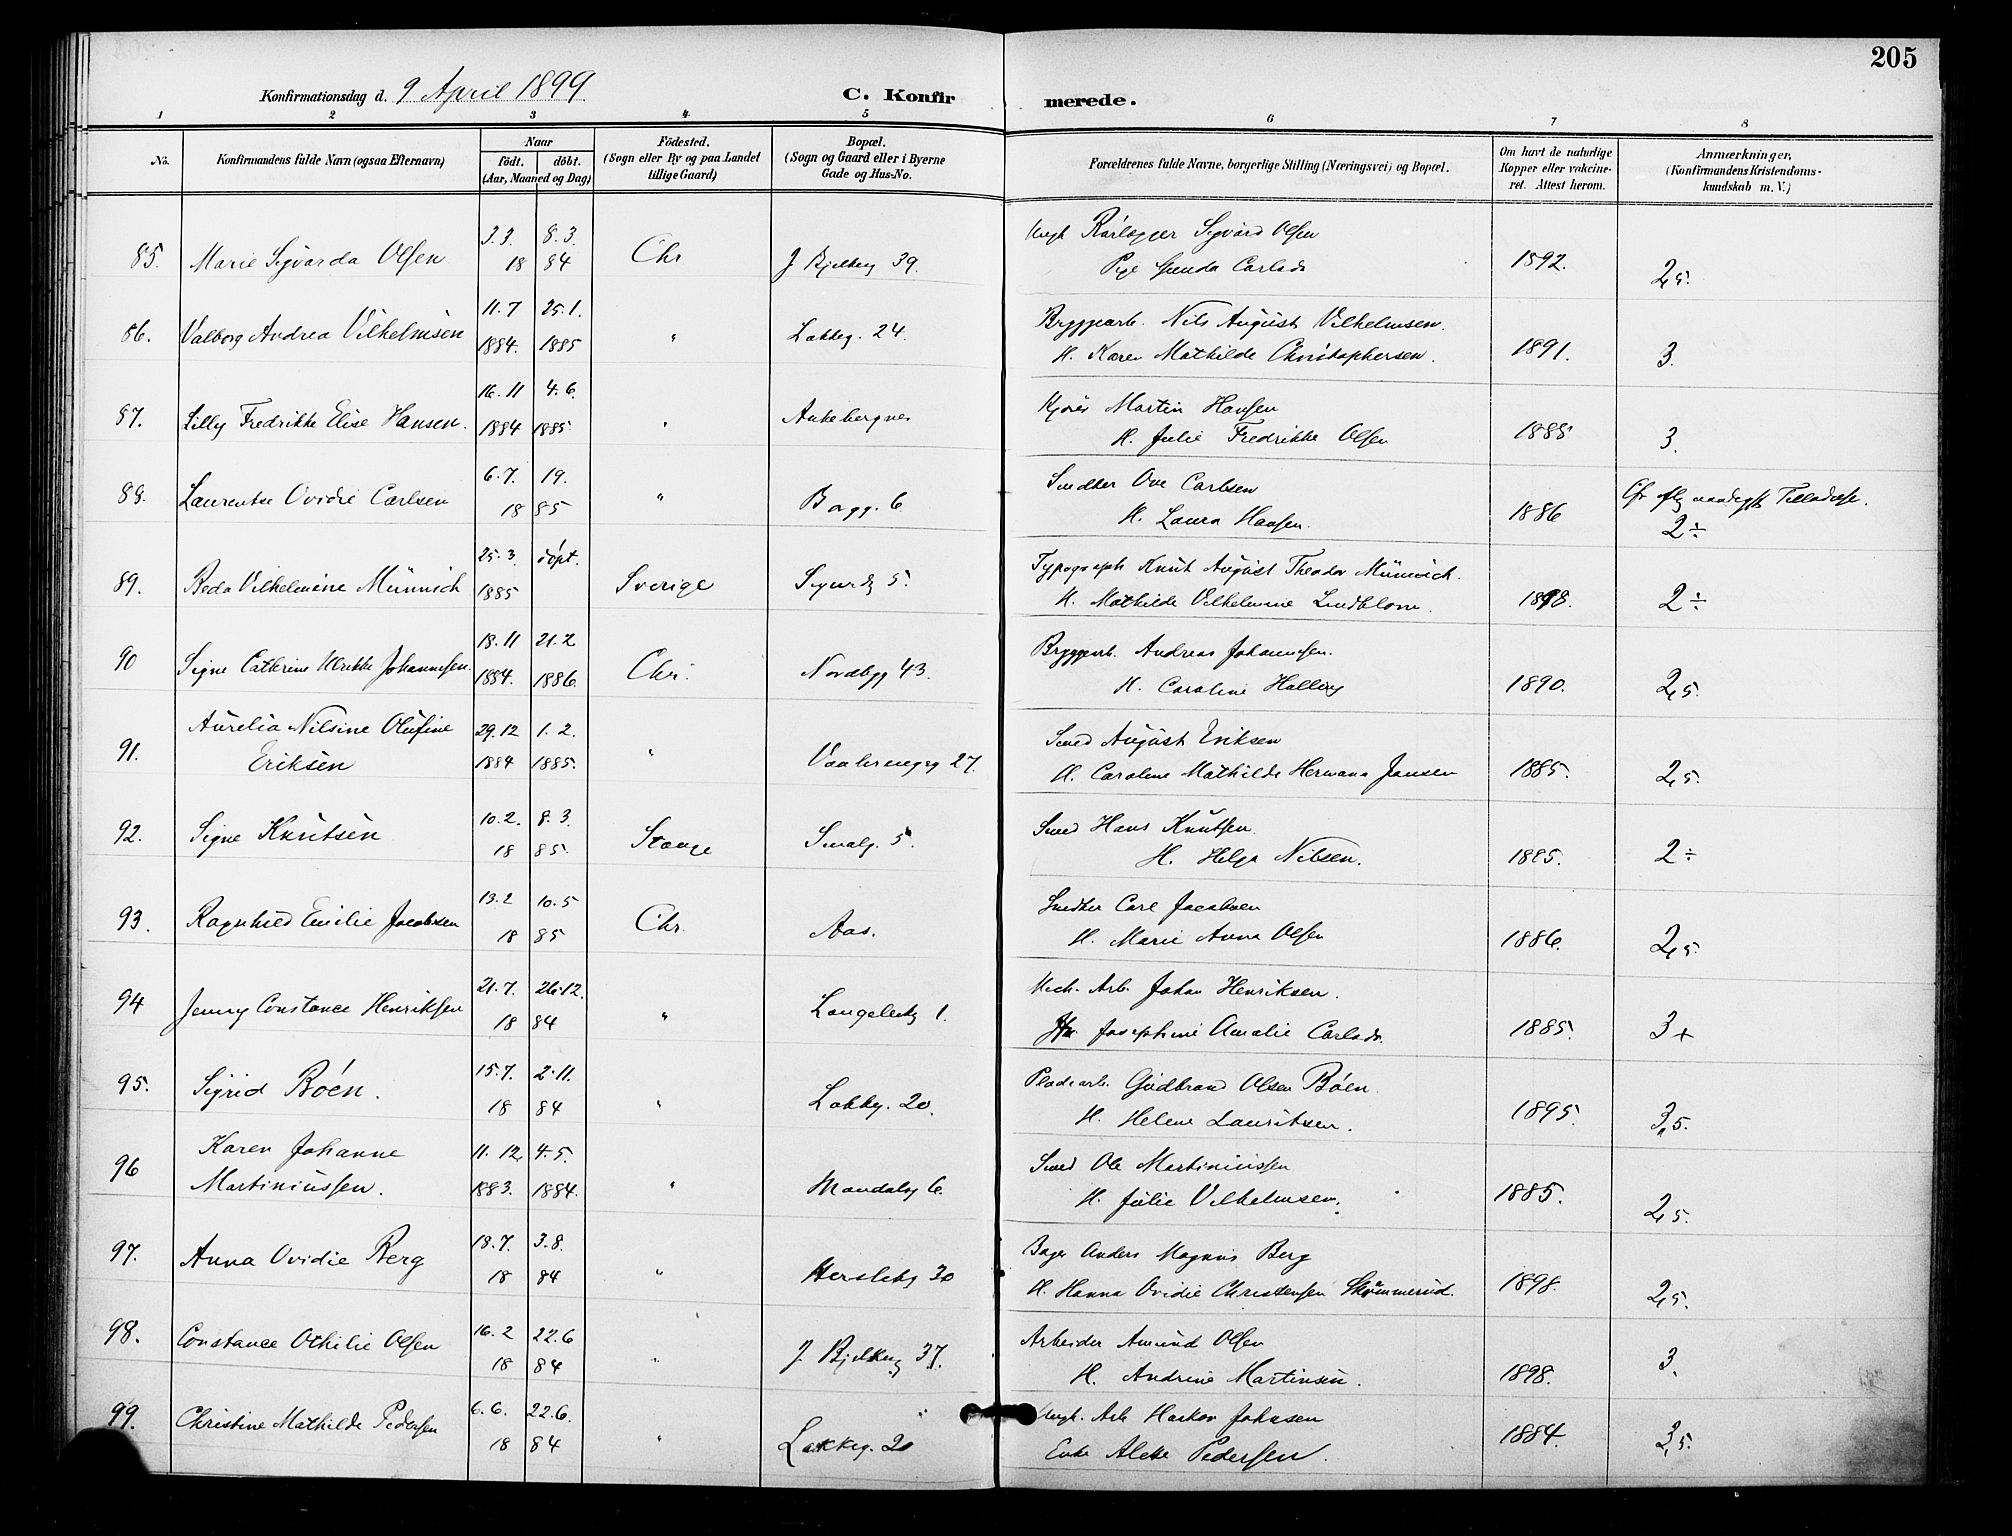 205
Konfirmationsdag d. 9 April 1899. C. Konfirmerede.
1 2 3 4 5 6 7 8
No. Konfirmandens fulde Navn (ogsaa Efternavn) Naar født. døbt. (Aar, Maaned og Dag) Fødested. (Sogn eller By og paa Landet tillige Gaard) Bopæl. (Sogn og Gaard eller i Byerne Gade og Hus-No. Forældrenes fulde Navne, borgerlige Stilling (Næringsvei) og Bopæl. Om havt de naturlige Kopper eller vakcineret. Attest herom. Anmærkninger, (Konfirmandens Kristendomskundskab m. V.)
85. Marie Sigvarda Olsen 3.3. 8.3. 18 84 Chr J Bjelkeg 39. Ungk Rørlægger Sigvard Olsen
Pige Gunda Carlsdr 1892. 2,5.
86. Valborg Andrea Vilhelmsen 11.7 1884. 25.1. 1885 " Lakkeg. 24. Bryggearb. Nils August Vilhelmsen.
H. Karen Mathilde Christophersen. 1891. 3.
87. Lilly Fredrikke Elise Hansen. 16.11 1884 4.6. 1885. " Ankebergnes Martin Hansen
H. Julie Fredrikke Olsen 1885 3.
88. Laurentse Ovidie Carlsen 6.7. 19. 18 85 " Borgg. 6 Smedker Ove Carlsen
H. Laura Hansen. 1886 Tilladelse.
2÷
89. Beda Vilhelmine Münnich 25.3. 1885 døpt. Sverige Sigurdg 5. Typograph Knut August Theodor Münnich.
H. Mathilde Vilhelmine Lindblom. 1898. 2÷
90 Signe Cathrine Ulrikke Johannesen. 18.11 1884. 21.2 1886. Chr. Nordbyg 43. Bryggearb. Andreas Johannesen.
H. Caroline Halling 1890. 2,5.
91. Aurelia Nilsine Olufine
Eriksen 29.12 1884 1.2. 1885. " Vaalerengeg 27. Smed August Eriksen
H. Caroline Mathilde Hermana Jansen 1885. 2,5.
92. Signe Knutsen 10.2. 8.3. 18 85. Stange Smalg. 5. Smed Hans Knutsen
H. Helga Nilsen. 1885. 2÷
93. Ragnhild Emilie Jacobsen 13.2 10.5 18 85 Chr Aas. Smedker Carl Jacobsen
H. Marie Anna Olsen 1886. 2,5.
94 Jenny Constance Henriksen 21.7. 26.12. 18 84 " Langeleikg 1. Mech. Arb. Johan Henriksen.
Josephine Amalie Carlsdr. 1885. 3+
95. Sigrid Bøen. 15.7. 2.11. 18 84 " Lakkg. 20. Pladearb. Gudbrand Olsen Bøen.
H. Helene Lauritsen. 1895. 3,5.
96 Karen Johanne
Martiniussen. 11.12. 1883. 4.5. 1884. " Mandalsg 6. Smed Ole Martiniussen
H. Julie Vilhelmsen. 1885. 2,5.
97. Anna Ovidie Berg 18.7. 3.8. 18 84 " Herslebsg 30 Bager Anders Magnus Berg
H. Hanna Ovidie Christensen Skrimmerud. 1898. 2,5.
98. Constance Othilie Olsen 16.2 22.6 18 84 " J. Bjelkeg 37. Arbeider Amund Olsen
H. Andrine Martinsen. 1898. 3.
99. Christine Mathilde Pedersen 6.6. 22.6. 18 84 " Lakkeg. 20 Ungk. Arb Haakon Johnsen
Enke Alette Pedersen. 1884. 3,5.